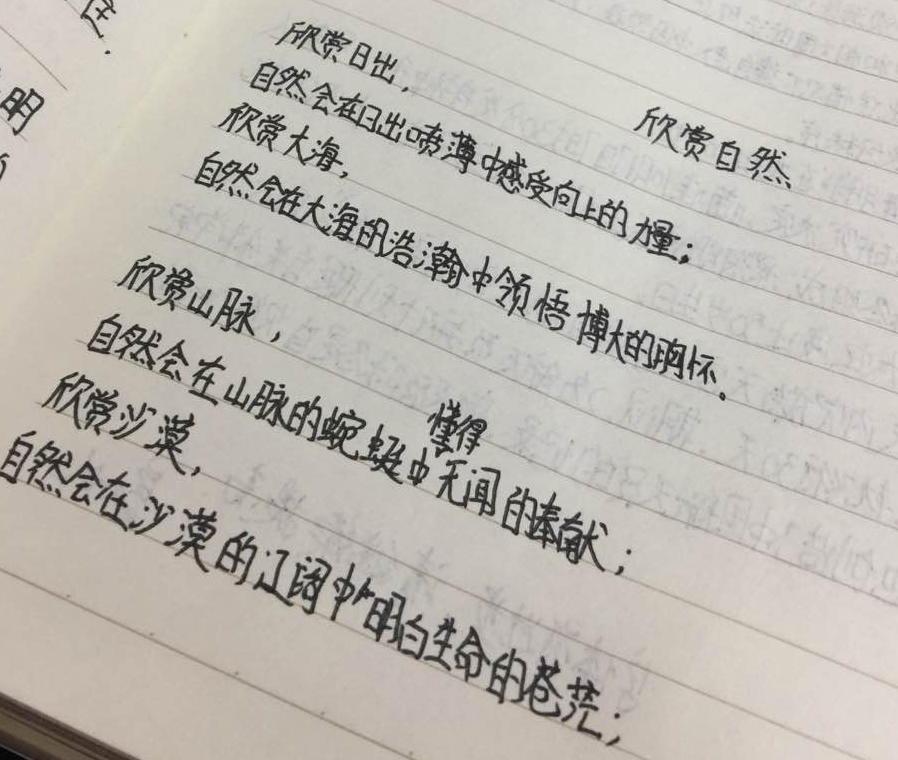 欣赏自然
欣赏日出，
自然会在日出喷薄中感受向上的力量；
欣赏大海，
自然会在大海的浩瀚中领悟博大的胸怀。
欣赏山脉，
自然会在山脉的蜿蜒中懂得无闻的奉献；
欣赏沙漠，
自然会在沙漠的辽阔中明白生命的苍茫；
明